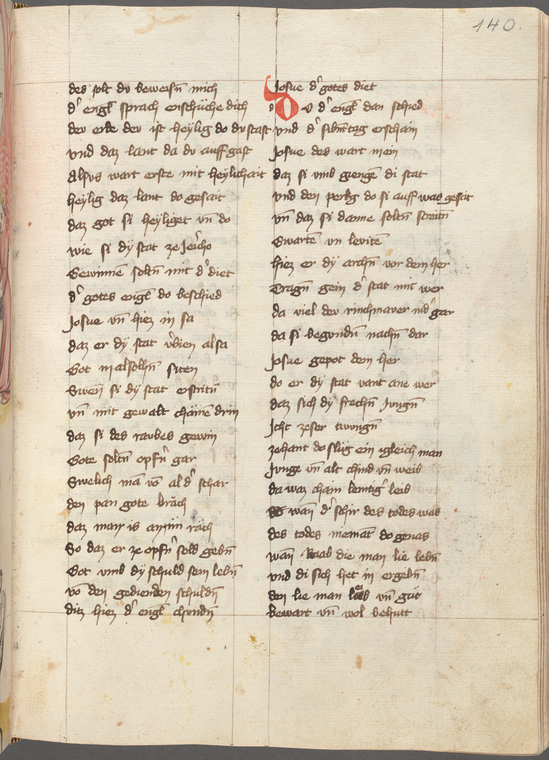 140.
des solt du beweisñ mich
d' engl sprach enschüche dich
der erde der ist heylig do du stast
vnd daz lant da du auff gast
Alsus wart erste mit heylicheit
heylig daz lant do geseit
daz got si heyliget vñ do
wie si dy stat ze Jericho
Gewinnē soltñ mit d' diet
d' gotes engl do beschied
Josue vñ hiez in sa
daz er dy stat v'dien alsa
Got in alsolhñ siten
Swen si dy stat erstritñ
vñ mit gewalt chōme drin
daz si des raubes gewin
Gote soltñ opfñ gar
Swelich mā vō al d' schar
den pan gote brach
daz man is an im rach
So daz er ze opfñ sold gebñ
Got vmb dy schuld sein lebñ
vō den gedienden schuldñ
ditz hiez d' engl chundñ
Josue d' gotes diet
Do v d' engl dan schied
vnd d' sibm̄tag erschain
Josue des wart mein
daz si vmb gienge di stat
vnd den perkg do si auff was gesat
vñ daz si danne soltñ streitñ
Ewartē vn levitē
hiez er dy archñ vor dem her
Tragñ gein d' stat mit wer
da viel der rinchmaver nid' gar
da si begondñ nachñ dar
Josue gepot dem her
do er dy stat vant ane wer
daz sich dy frechñ Jungñ
Icht zeser twungñ
zehant do slug ein igleich man
Junge vñ alt chind vñ weib
da waz chain lemtig' leib
wan d' schir des todes was
des todes niemāt do genas
wan Raab die man lie lebñ
vnd di sich het in ergebñ
den lie man leib vñ gut
bewart vñ wol behutt